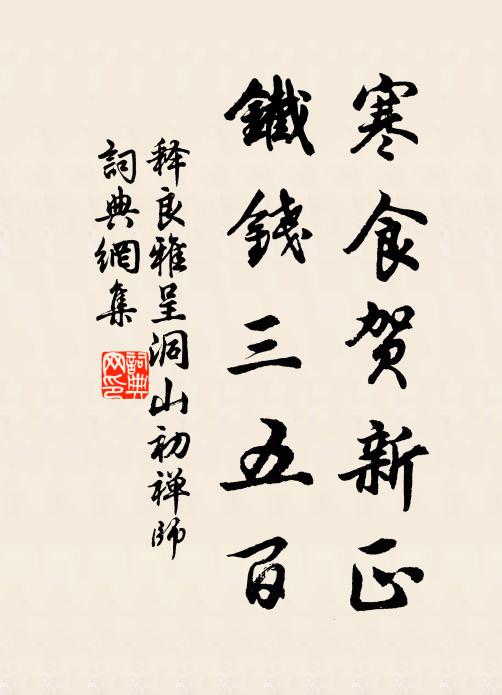 寒食贺新正
鐵錢三五百
释良雅呈洞山初禅师
詞典網集
詞典网印